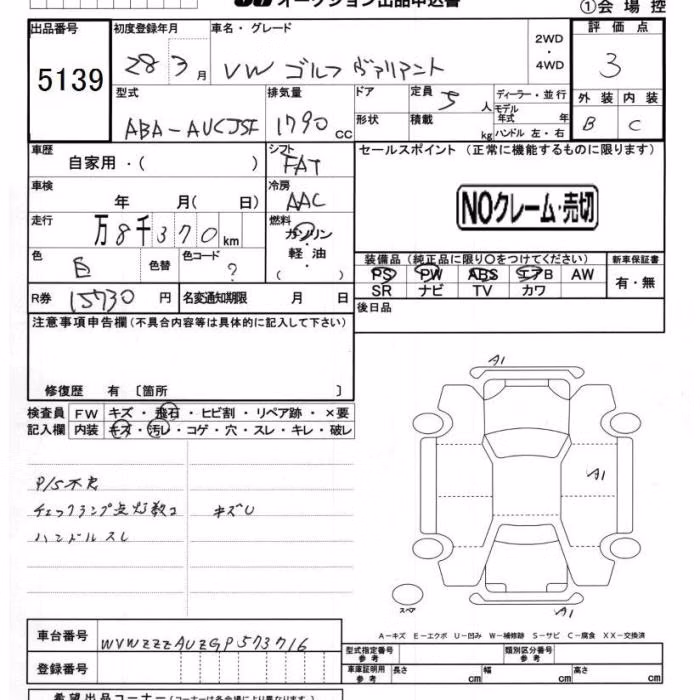 オークション出品申込書 ①会場控
出品番号 初度登録年月 車名・グレード 評価点
5139 28 3月 VW ゴルフ ヴァリアント 2WD・4WD 3
型式 排気量 ドア 定員 5人 ディーラー・並行 外装 内装
モデル年式 年
ABA-AUCJSF 1790cc 形状 積載 kg ハンドル 左・右 B C
車歴 自家用・( ) シフト FAT セールスポイント(正常に機能するものに限ります)
車検 年 月( 日) 冷房 AAC NOクレーム・売切
走行 万8千370km 燃料 ガソリン
軽・油
( )
色 色替 色コード ? 装備品(純正品に限り〇をつけてください) 新車保証書
PS PW ABS エアB AW 有・無
SR ナビ TV カワ
R券 15730円 名変通知期限 月 日 後日品
注意事項申告欄(不具合内容等は具体的に記入して下さい)
修復歴 有〔箇所 〕
検査員 FW キズ・飛石・ヒビ割・リペア跡・×要
記入欄 内装 キズ・汚レ・コゲ・穴・スレ・キレ・破レ
A1
A1
P/S不良
チェックランプ点灯数コ キズU
ハンドルスレ
スペア
A1
A-キズ E-エクボ U-凹み W-補修跡 S-サビ C-腐食 XX-交換済
車台番号 WVWZZZAUZGP573716 型式指定番号 参考 類別区分番号 参考
登録番号 車庫証明用 参考 長さ cm 幅 cm 高さ cm
希望出品コーナー(コーナーは各会場により異なります)